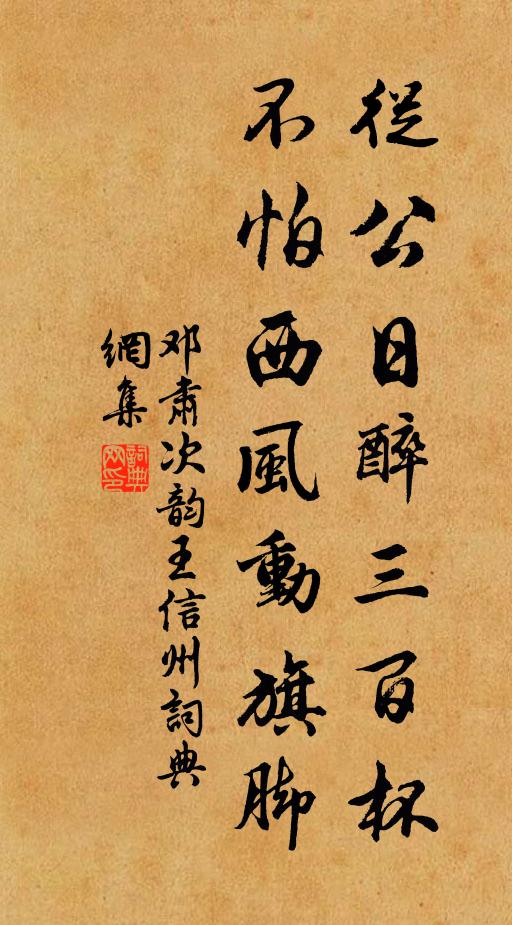 從公日醉三百杯
不怕西風動旗脚
邓肅次韵王信州詞典
網集
詞典
网印